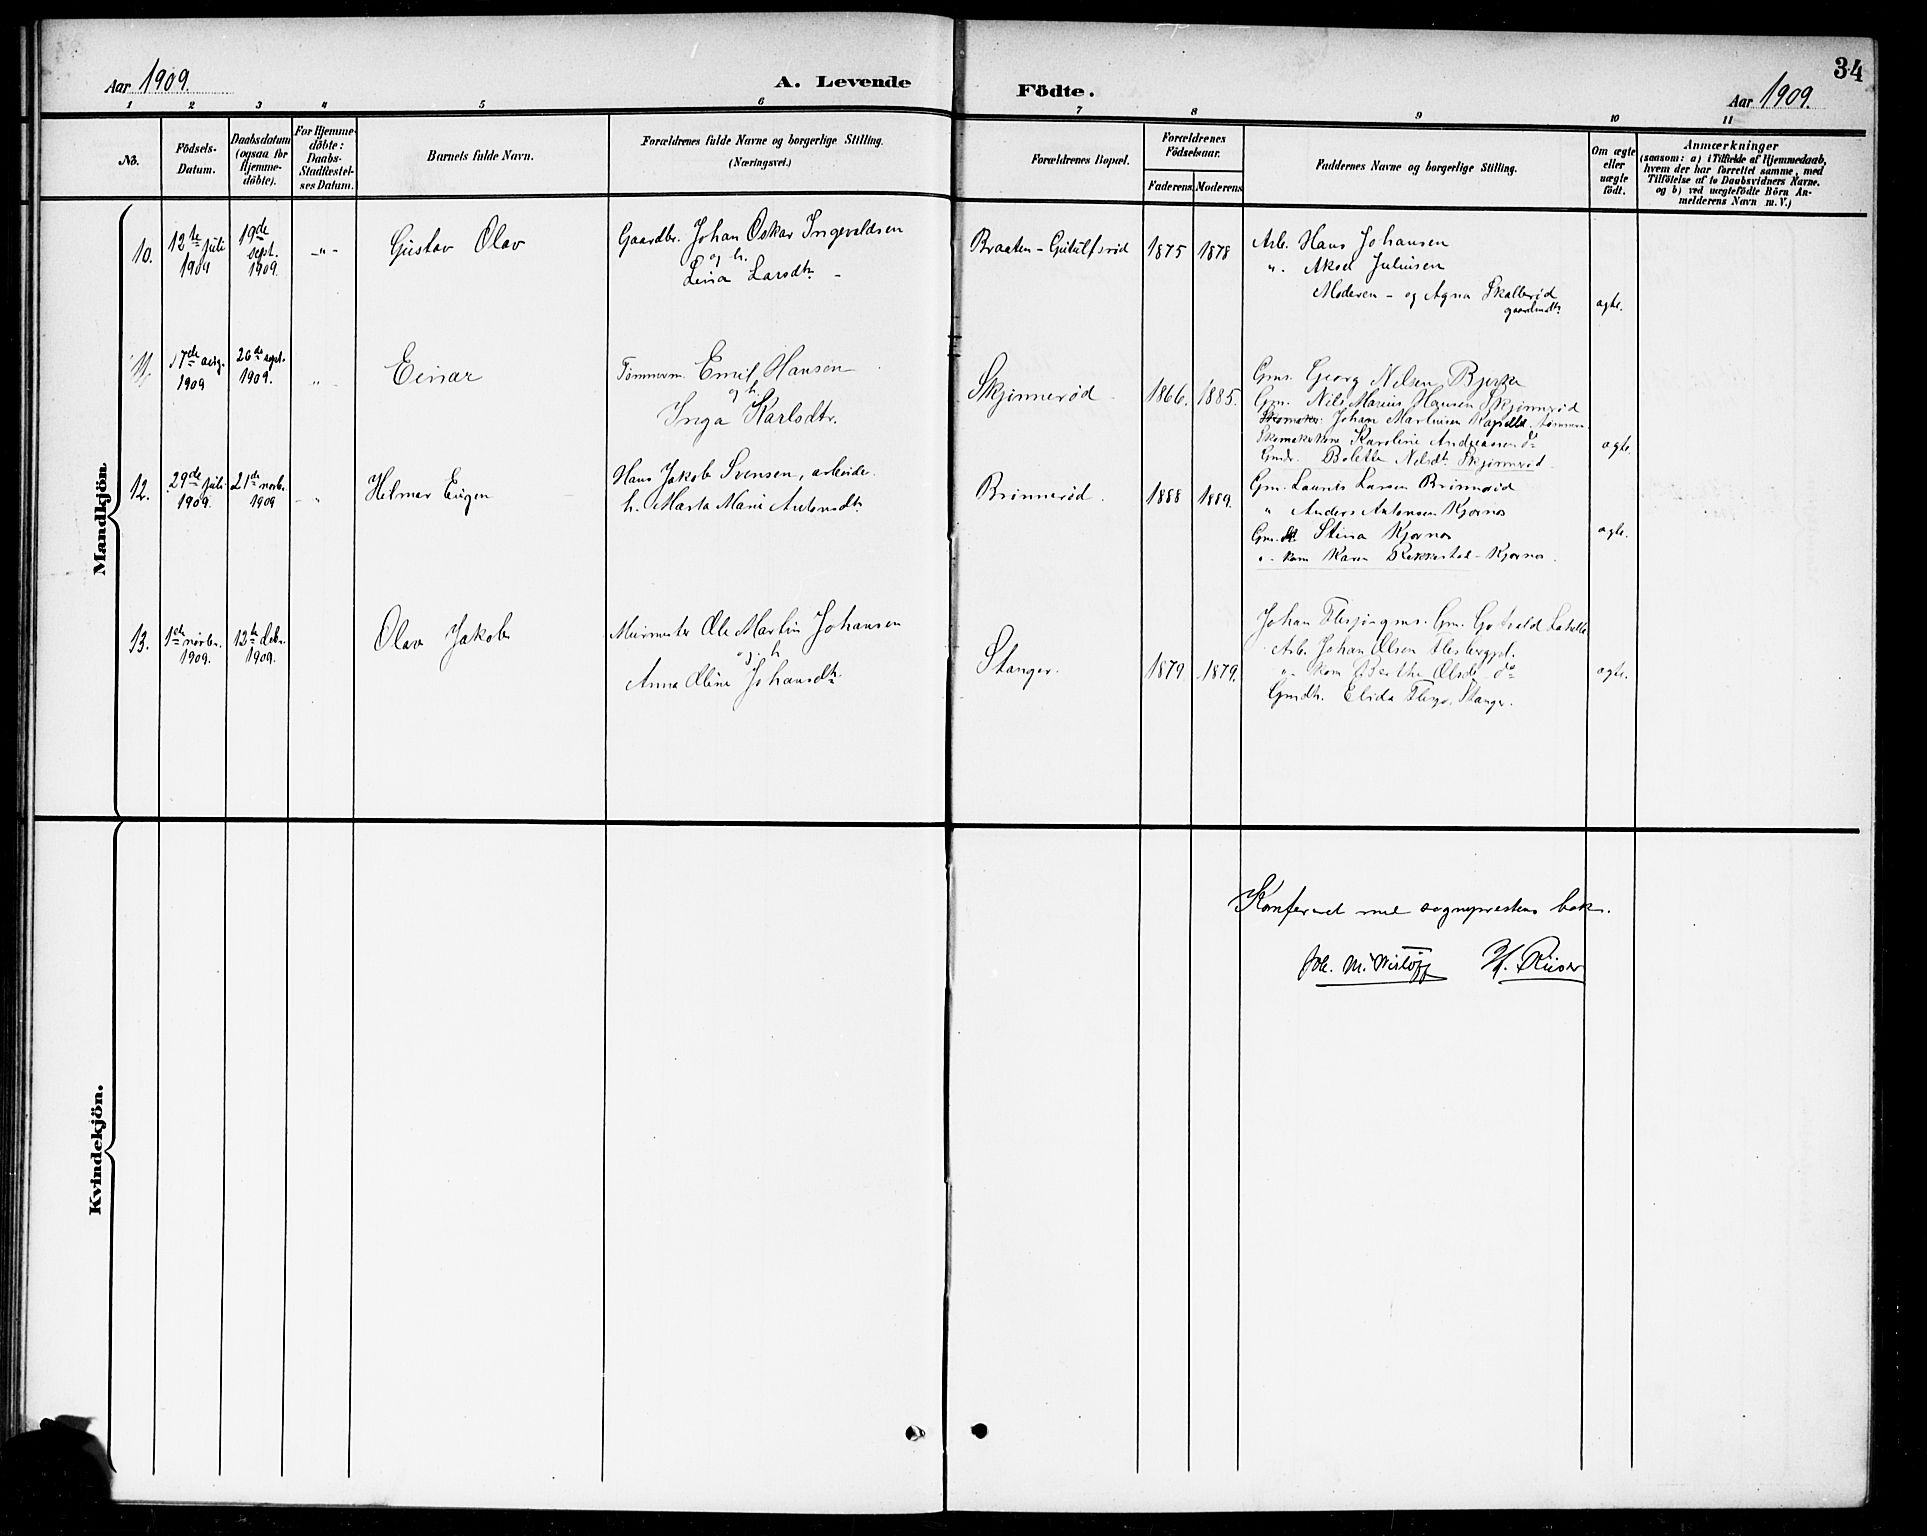 34
Aar 1909.
A. Levende Födte.
Aar 1909.
1 2 3 4 5 6 7 8 9 10 11
No.
Födsels-
Datum.
Daabsdatum
(ogsaa for
Hjemme-
döbte).
For Hjemme-
döbte:
Daabs-
Stadfæstel-
ses Datum.
Barnets fulde Navn.
Forældrenes fulde Navne og borgerlige Stilling.
(Næringsvei.)
Forældrenes Bopæl.
Forældrenes
Födselsaar.
Faderens. Moderens.
Faddernes Navne og borgerlige Stilling.
Om ægte
eller
uægte
födt.
Anmærkninger
(saasom: a) i Tilfælde af Hjemmedaab,
hvem der har forrettet samme, med
Tilföielse af to Daabsvidners Navne.
og b) ved uægtefödte Börn An-
melderens Navn m. V.)
Mandkjön.
10.
12te juli
1909
19de
sept.
1909.
-"-
Gustav Olav
Gaardbr. Johan Oskar Ingevaldsen
og h.
Lina Larsdtr. -
Braaten - Gutulfsrød
1875 1878
Arb. Hans Johansen
". Aksel Juliusen
Moderen - og Agna Skallerød
gaardmdtr.
agte.
11.
17de aug.
1909
26de sept.
1909.
"
Einar
Tømmerm. Emil Hansen
og h.
Inga Karlsdtr.
Skjinnerød
1866. 1885.
Gms. Georg Nilsen Bjerke
Gm. Nils Marius Hansen Skjinnerød
Skomaker Johan Martinsen tømmerm.
Karoline Andreassen do
Bolette Nelsdtr. Skjinnerød.
agte.
12.
29de juli
1909.
21de novbr.
1909
"
Helmer Eugen
Hans Jakob Svensen, arbeider
h. Marta Marie Antonsdtr.
Brinnerød.
1888 1889.
Gm. Laurits Larsen Brinnerød
" Anders Antonsen Kjærnes
Gm. dtr. Stina Kjærnes
"- kone Karen Rekkestad - Kjærnes.
agte.
13.
1ste novbr.
1909.
12te Debr.
1909.
Olav Jakob
Murmester Ole Martin Johansen
og h
Anna Oline Johansdtr.
Stanger.
1879 1879.
Johan
Arb. Johan Olsen
"- kone Berthe Olsdtr. do
Gmdtr. Elida Stanger.
agte.
Kvindekjön.
Konfereret med sogneprestens bok.
Joh. M. Wisløff H. Riiser